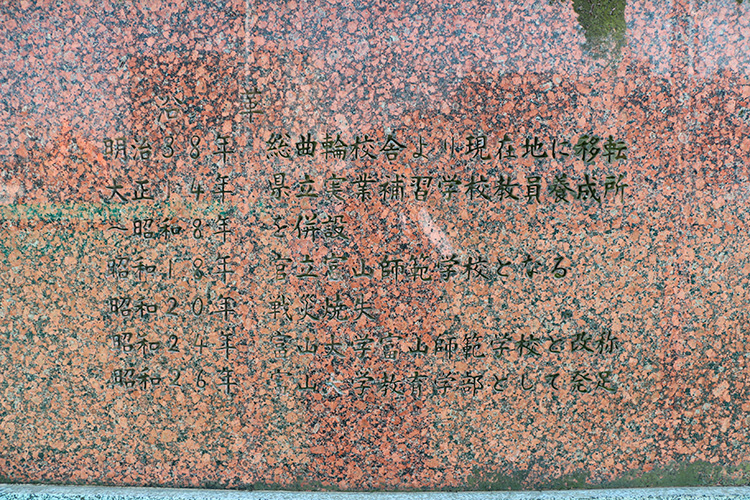 沿革
明治38年 総曲輪校舎より現在地に移転
大正14年 県立実業補習学校教員養成所
〜昭和8年 を併設
昭和18年 官立富山師範学校となる
昭和20年 戦災焼失
昭和24年 富山大学富山師範学校と改称
昭和26年 富山大学教育学部として発足